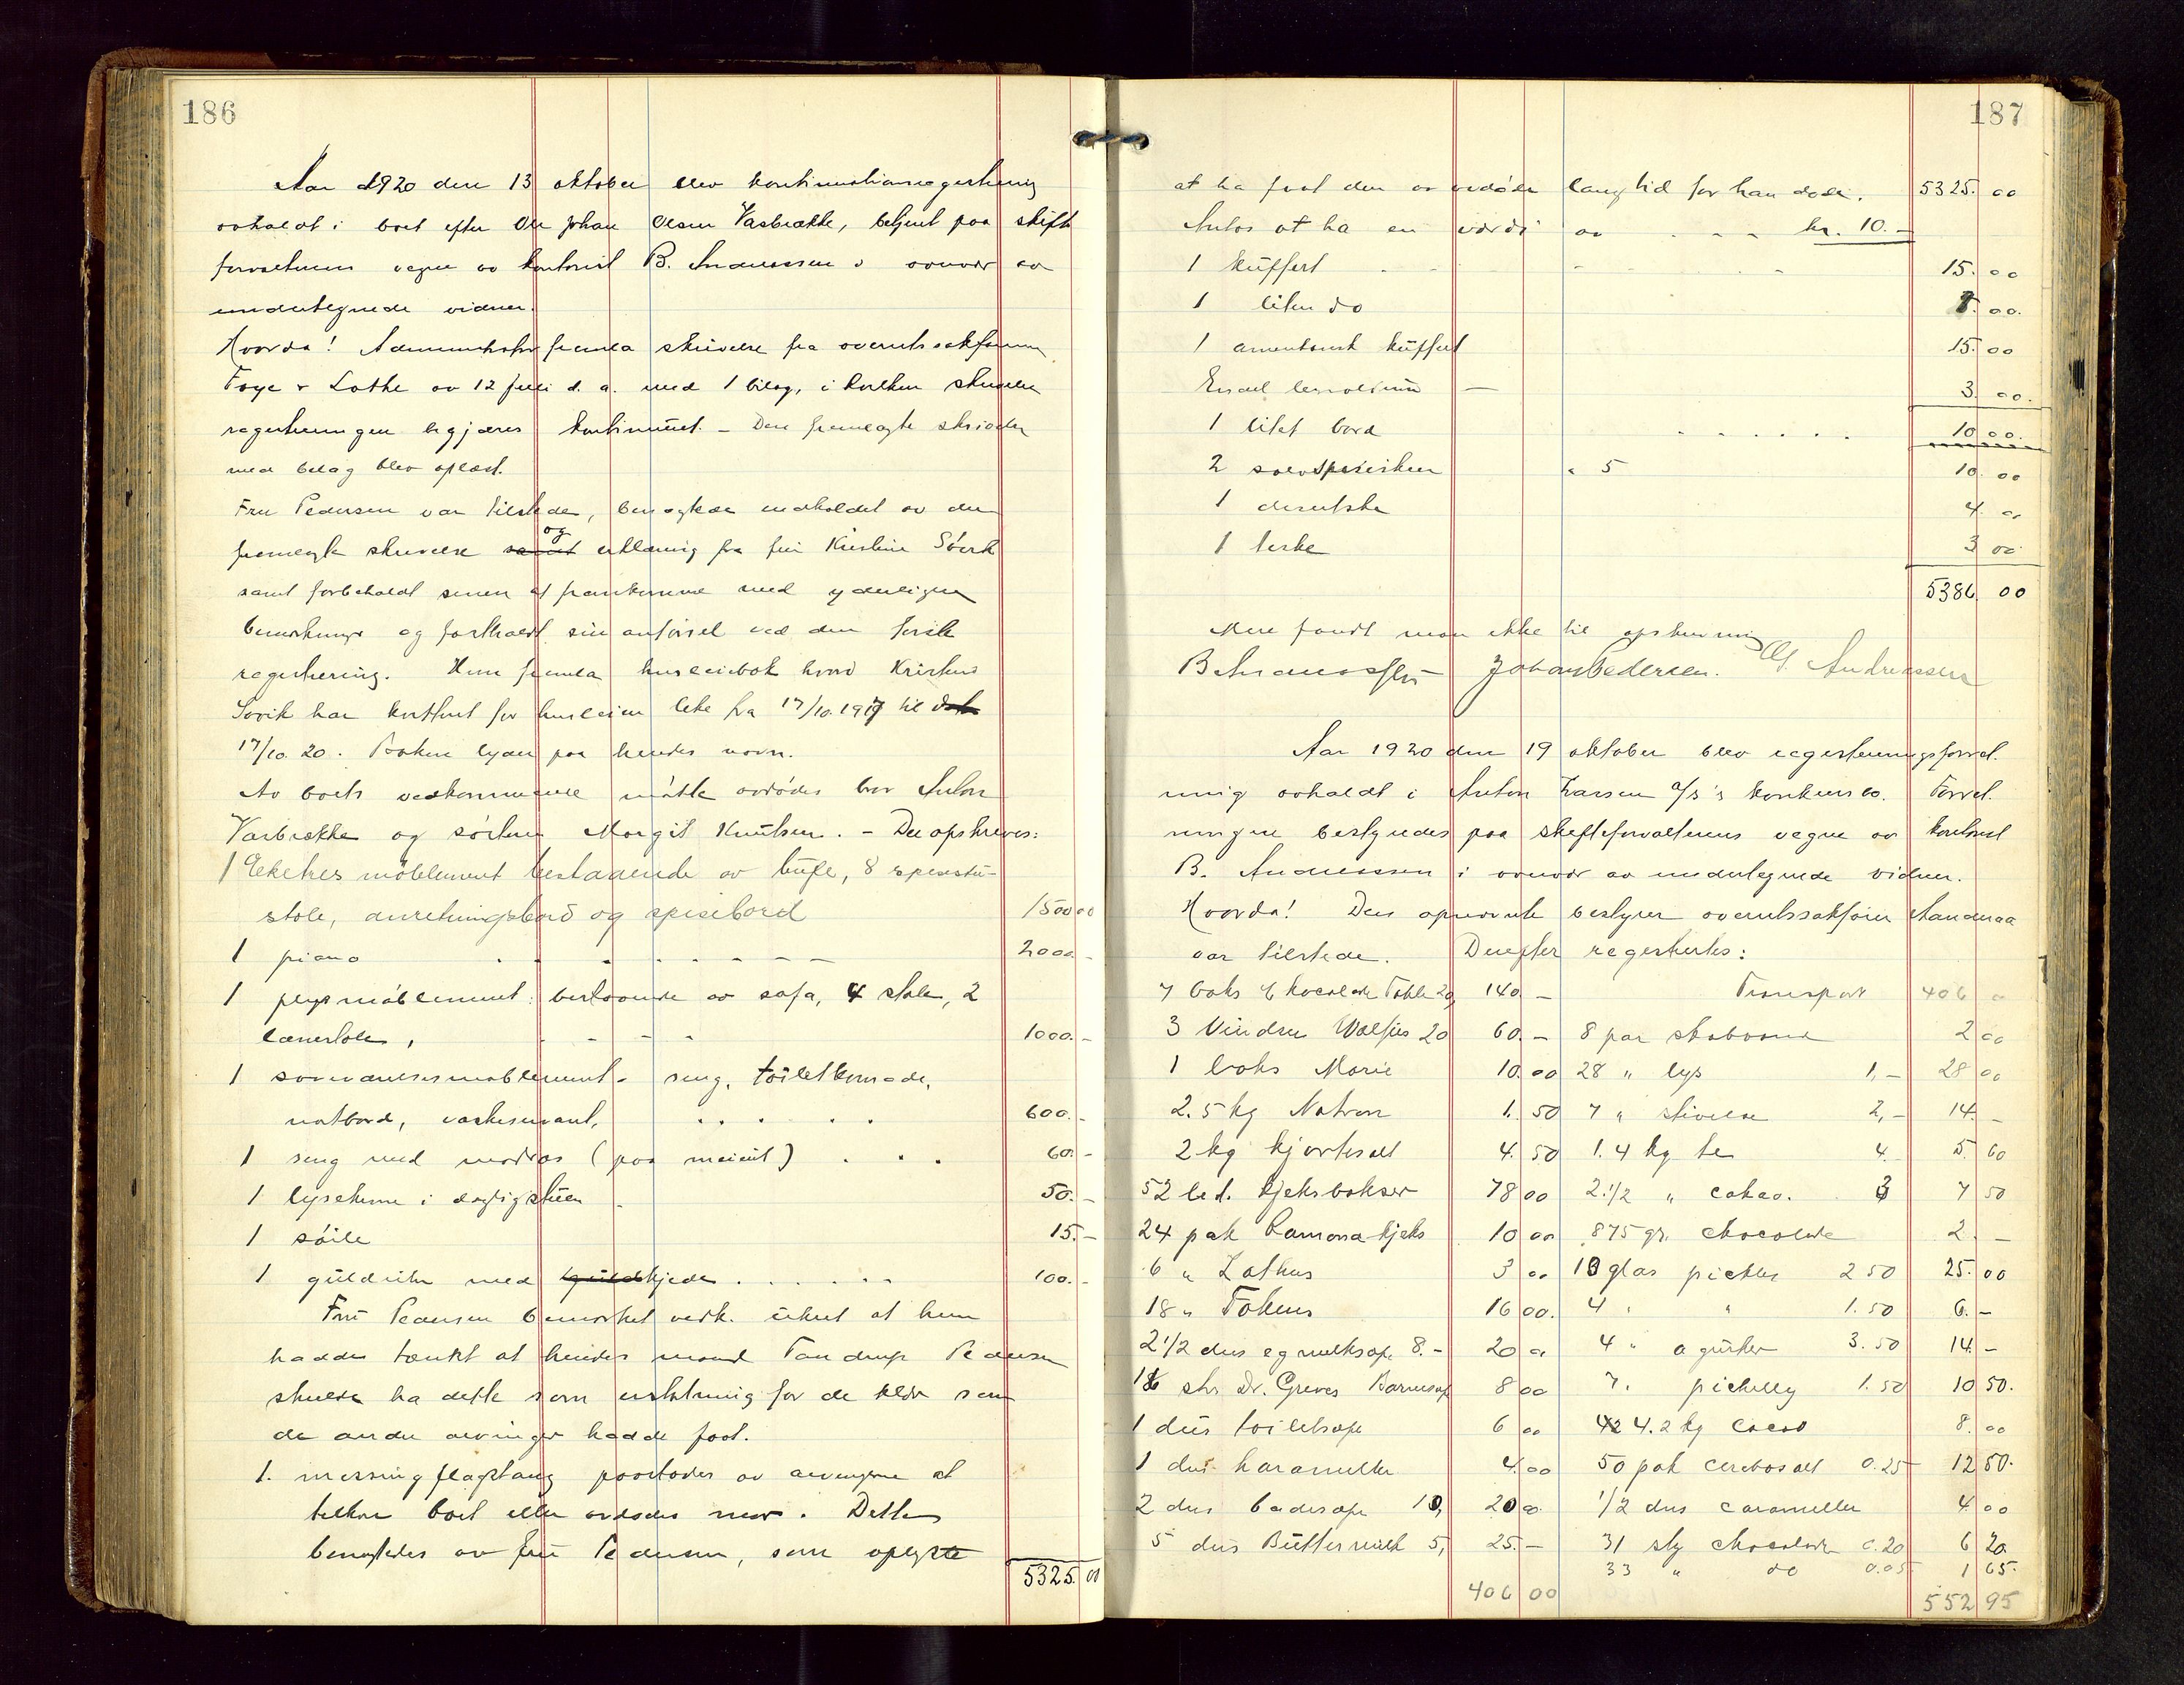 186
Aar 1920 den 13 oktober blev kontinuationsregistrering
avholdt i boet efter Ole Johan Olsen Vasbrække, betjent paa skifte
forvalterens vegne av kontorist B. Andreassen i overvær av
undertegnede vidner.
Hvorda! Administrator fremla skrivelse fra overretssakførerne
Foye & Lothe av 12 juli d. a. med 1 bilag, i hvilken skrivelse
registreringen begjæres kontinuert. - Den fremlagte skrivelse
med bilag blev oplæst.
Fru Pedersen var tilstede, benegtede indholdet av den
fremlagte skrivelse samt og erklæring fra frk Kristine Søvik
samt forbeholdt senere at fremkomme med yderligere
bemerkninger og fastholdt sin anførsel ved den første
registrering. Hun fremla husleiebok hvori Kristine
Sovik har kvittert for husleien lete fra 17/10. 1917 til dato
17/10. 20. Boken lyder paa hendes navn.
Av boets vedkommende møtte avdødes bror Anton
Vasbrække og søster Margit Knutsen. - Der opskreves:
1 Eketres møblement bestaaende av bufe, 8 spisestu-
stole, anretningsbord og spisebord 1500 00
1 piano 2000 -
1 plysmøblement: bestaaende av sofa, 4 stole, 2
lænestole, 1000. -
1 soveværelsesmøblement - seng, toiletkomode,
natbord, vaskeservant, 600. -
1 seng med madras (paa pikeværelset) 60. -
1 lysekrone i dagligstuen 50. -
1 søile 15. -
1 guldur med guldkjede 100. -
Fru Pedersen bemerket vedk. uhret at hun
hadde tænkt at hendes mand Tandrup Pedersen
skulde ha dette som erstatning for de klær som
de andre arvinger hadde faat.
1. messing flagstang paastodes av arvingerne at
tilhøre boet eller avdødes mor. Dette
benegtedes av fru Pedersen, som oplyste
5325. 00
187
at ha faat den av avdøde lang tid før han døde. 5325. 00
Antas at ha en værdi av kr. 10. -
1 kuffert 15. 00
1 liten do 8. 00.
1 amerikansk kuffert 15. 00
Endel 3. 00.
1 litet bord 10 00.
2 sølvspiseskeer a 5 10. 00
1 4. 00
1 3 00.
5386 00
Mere fandt man ikke til opskrivning
B Andreassen Johan Pedersen. G. Andreassen
Aar 1920 den 19 oktober blev registreringsforret.
ning avholdt i Anton Larsen A/S's konkursbo. Forret.
ningen bestyredes paa skifteforvalterens vegne av kontorist
B. Andreassen i overvær av undertegnede vidner.
Hvorda! Den opnævnte bestyrer overretssakfører Aandnaa
var tilstede. Derefter registrertes:
7 boks Chocolade Table 20 140 -
3 Vindsu Wolfies 20 60. -
1 boks Marie 10. 00
2.5 kg Natron 1. 50
2 kg hjortesalt 4. 50
52 led. kjeksbokser 78 00
24 pak Camona kjeks 10 00
6 " Lothus 3 00
18 " Tokens 16 00.
2 1/2 dus eg melksape 8. - 20 00
16 stk Dr. Greves Barnesape 8 00
1 dus toiletsape 6 00
1 dus karameller 4 00
2 dus badesape 10, 20 00.
5 dus Buttermilk 5, 25. -
406 00
Transport 406 00
8 par skobaand 2 00
28 " lys 1, - 28 00
7 " stivelse 2, - 14. -
1.4 kg te 4. 5. 60
2 1/2 " cakao. 3 7 50
875 gr. chocolade 2. -
10 glas pickles 2 50 25. 00
4 " " 1. 50 6. -
4 " agurker 3. 50 14. -
7. pickelly 1. 50 10 50.
42 4.2 kg cacao 8. 00
50 pak cerebosalt 0.25 12 50.
1/2 dus carameller 4. 00
31 stg chocolade 0.20 6 20
33 " do 0.05 1 65.
552 95